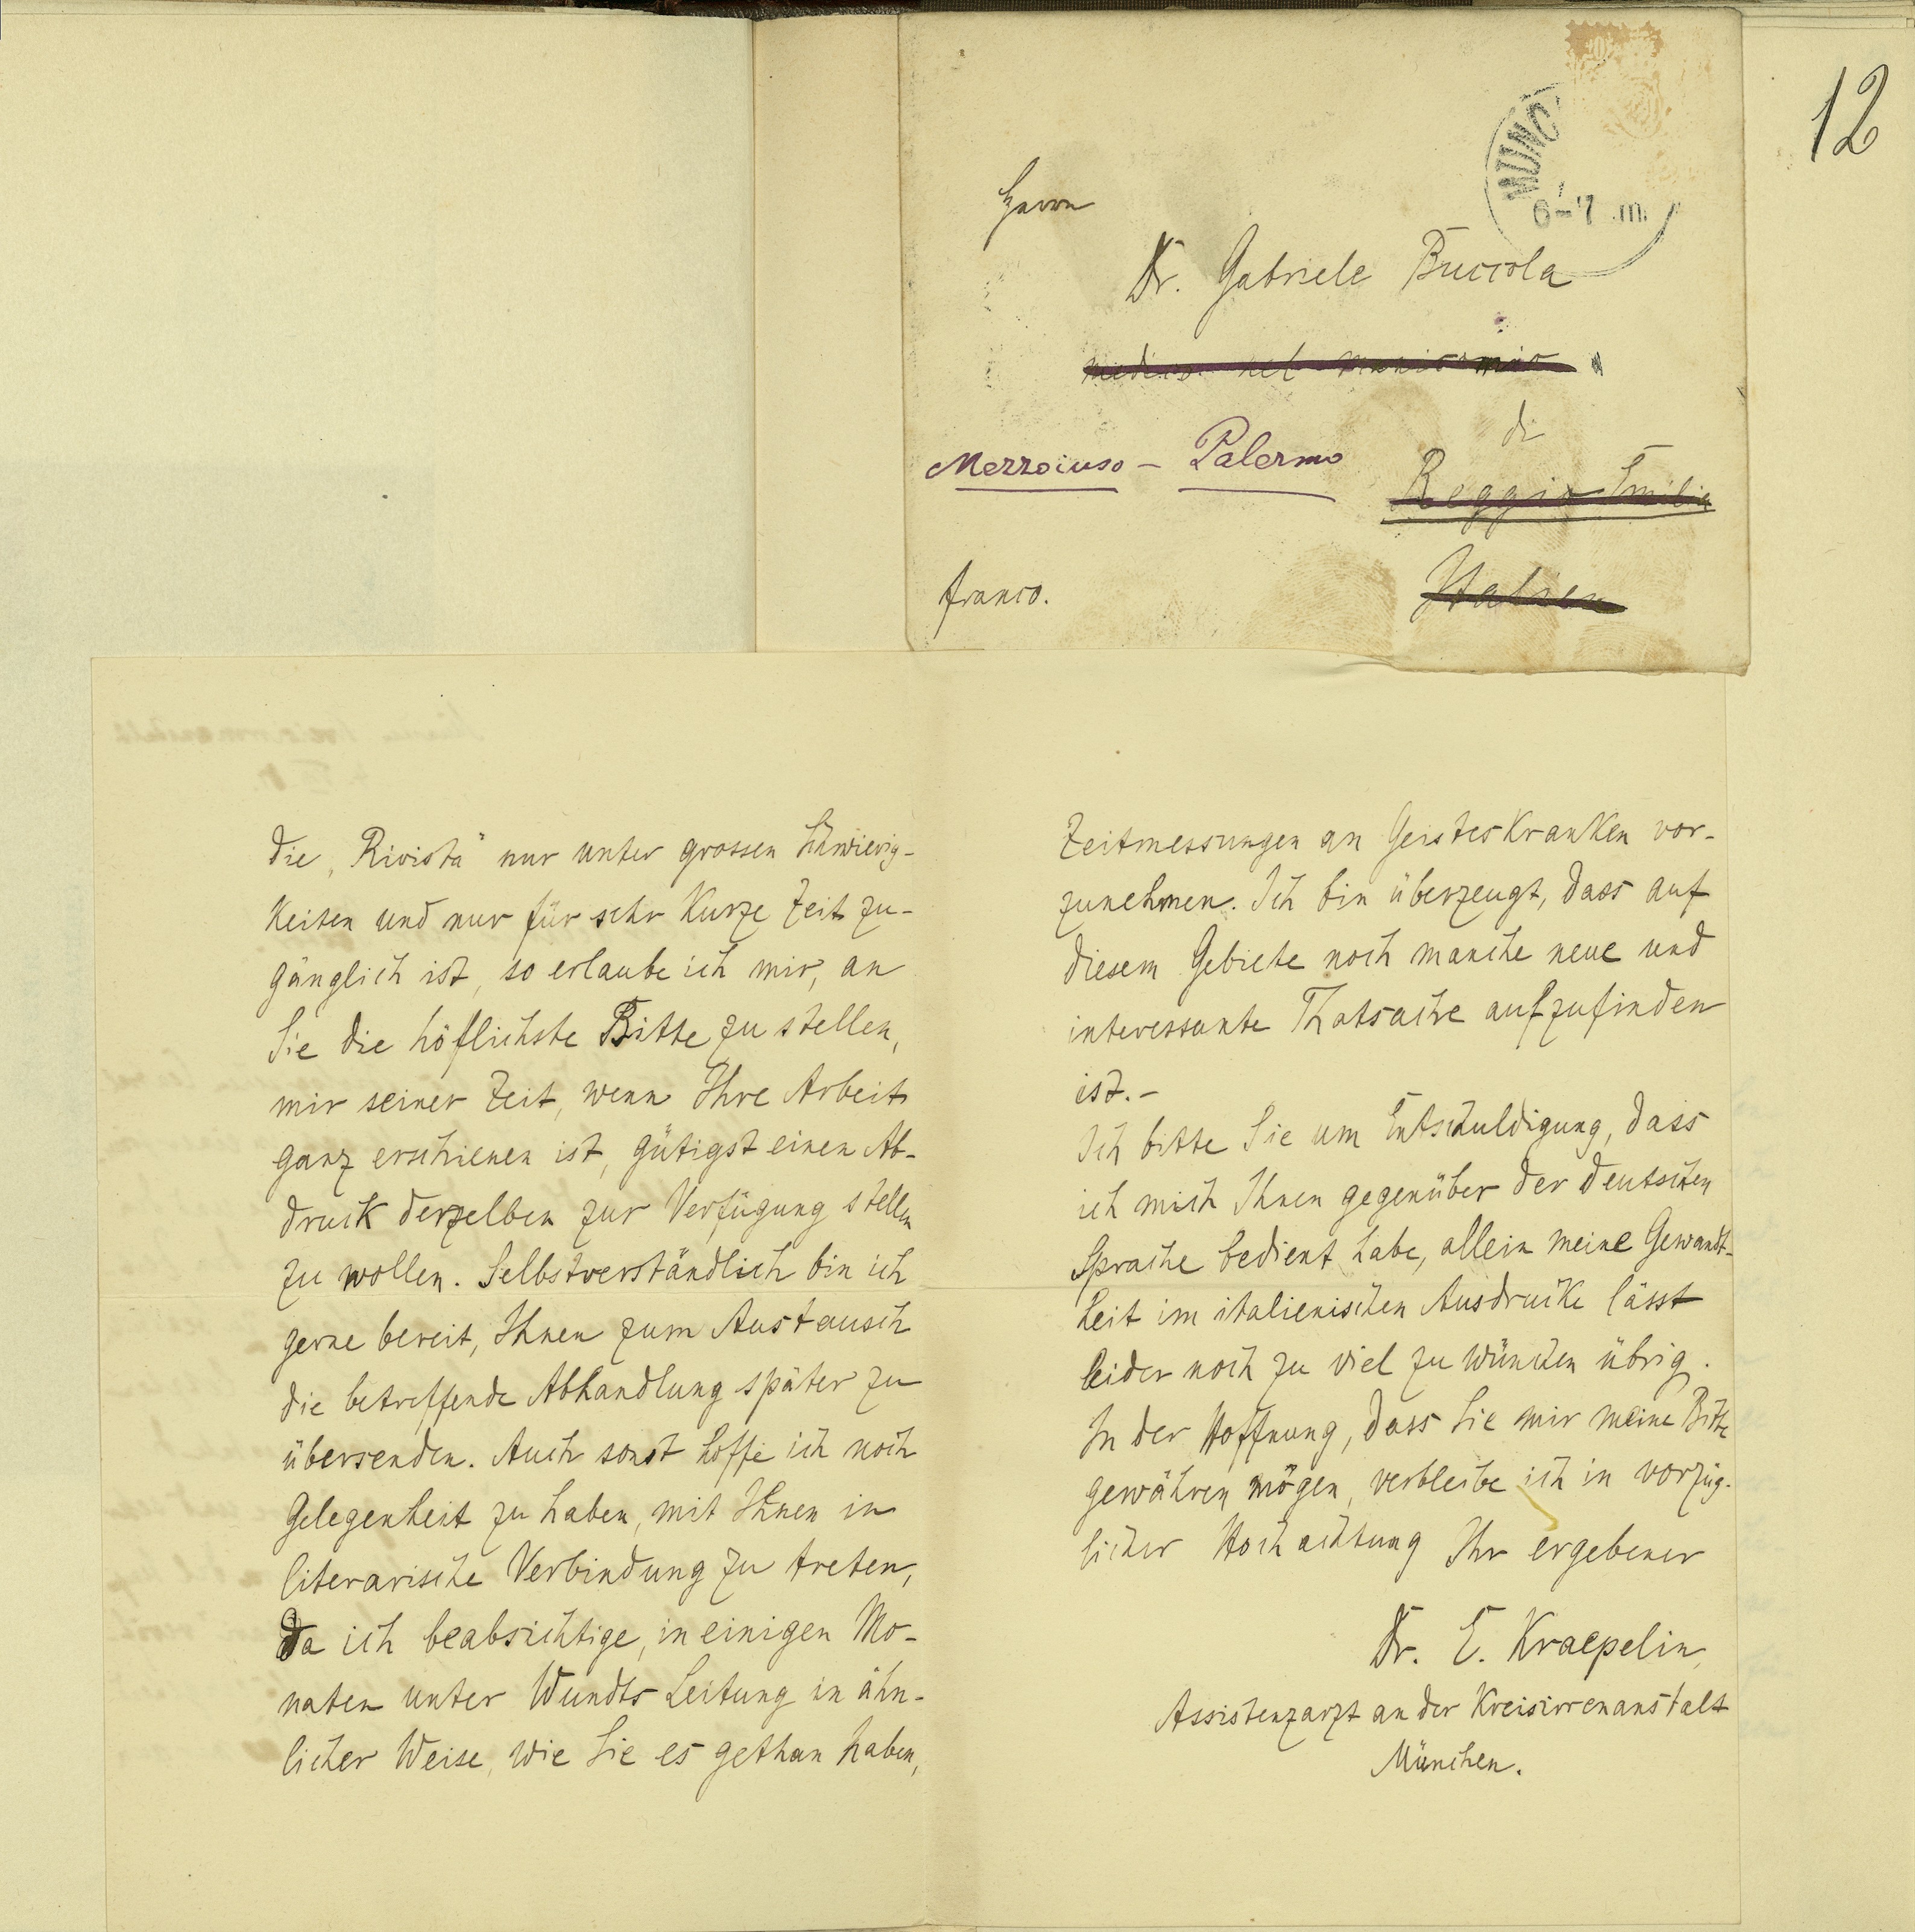 12
MÜNC
6-7 .m.
Herrn
Dr. Gabriele Buccola
medico nel manicomio
di
Mezzoiuso - Palermo
Reggio Emilia
franco.
Italien
die „Rivista" nur unter grossen Schwierig-
keiten und nur für sehr kurze Zeit zu-
gänglich ist, so erlaube ich mir, an
Sie die höflichste Bitte zu stellen,
mir seiner Zeit, wenn Ihre Arbeit
ganz erschienen ist, gütigst einen Ab-
druck derselben zur Verfügung stellen
zu wollen. Selbstverständlich bin ich
gerne bereit, Ihnen zum Austausch
die betreffende Abhandlung später zu
übersenden. Auch sonst hoffe ich noch
Gelegenheit zu haben, mit Ihnen in
literarische Verbindung zu treten,
da ich beabsichtige, in einigen Mo-
naten unter Wundts Leitung in ähn-
licher Weise, wie Sie es gethan haben,
Zeitmessungen an Geisteskranken vor-
zunehmen. Ich bin überzeugt, dass auf
diesem Gebiete noch manche neue und
interessante Thatsache aufzufinden
ist. -
Ich bitte Sie um Entschuldigung, dass
ich mich Ihnen gegenüber der deutschen
Sprache bedient habe, allein meine Gewandt-
heit im italienischen Ausdrucke lässt
leider noch zu viel zu wünschen übrig.
In der Hoffnung, dass Sie mir meine Bitte
gewähren mögen, verbleibe ich in vorzüg-
licher Hochachtung Ihr ergebener
Dr. E. Kraepelin,
Assistenzarzt an der Kreisirrenanstalt
München.